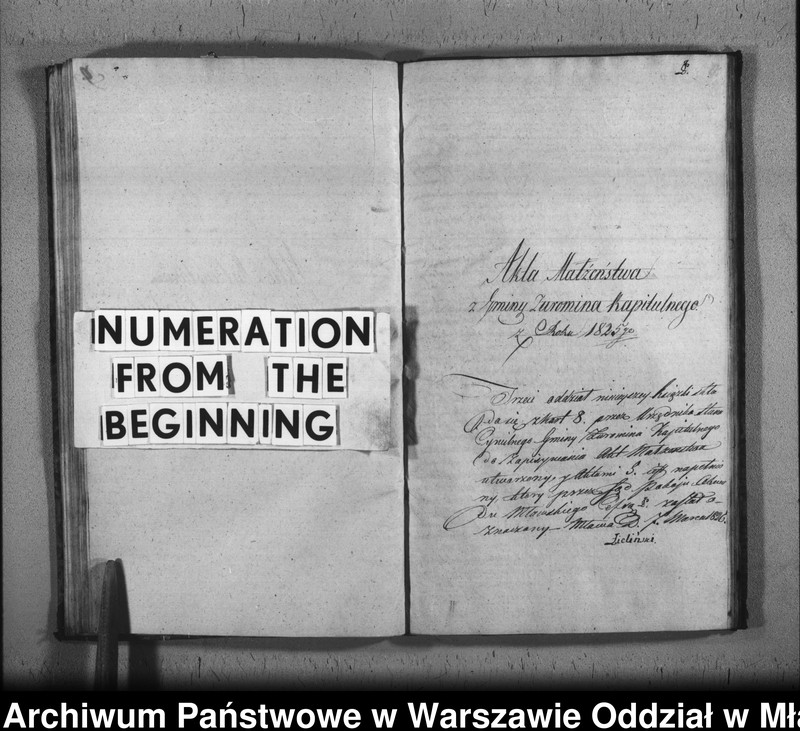 NUMERATION
FROM THE
BEGINNING
Akta Małżeństwa
z Gminy Żuromina Kapitulnego
z Roku 1825go
Trzeci oddział ninieyszey książki skła
da się z kart 8. przez Urzędnika Stanu
Cywilnego Gminy Żuromina Kapitulnego
do zapisywania Akt Małżeństw
utworzony, y Aktami 5.
ny który przez Sąd Pokoju
du Mławskiego został o-
znaczony Mława D. 7. Marca 1826.
Zieliński.
Archiwum Państwowe w Warszawie Oddział w Mła